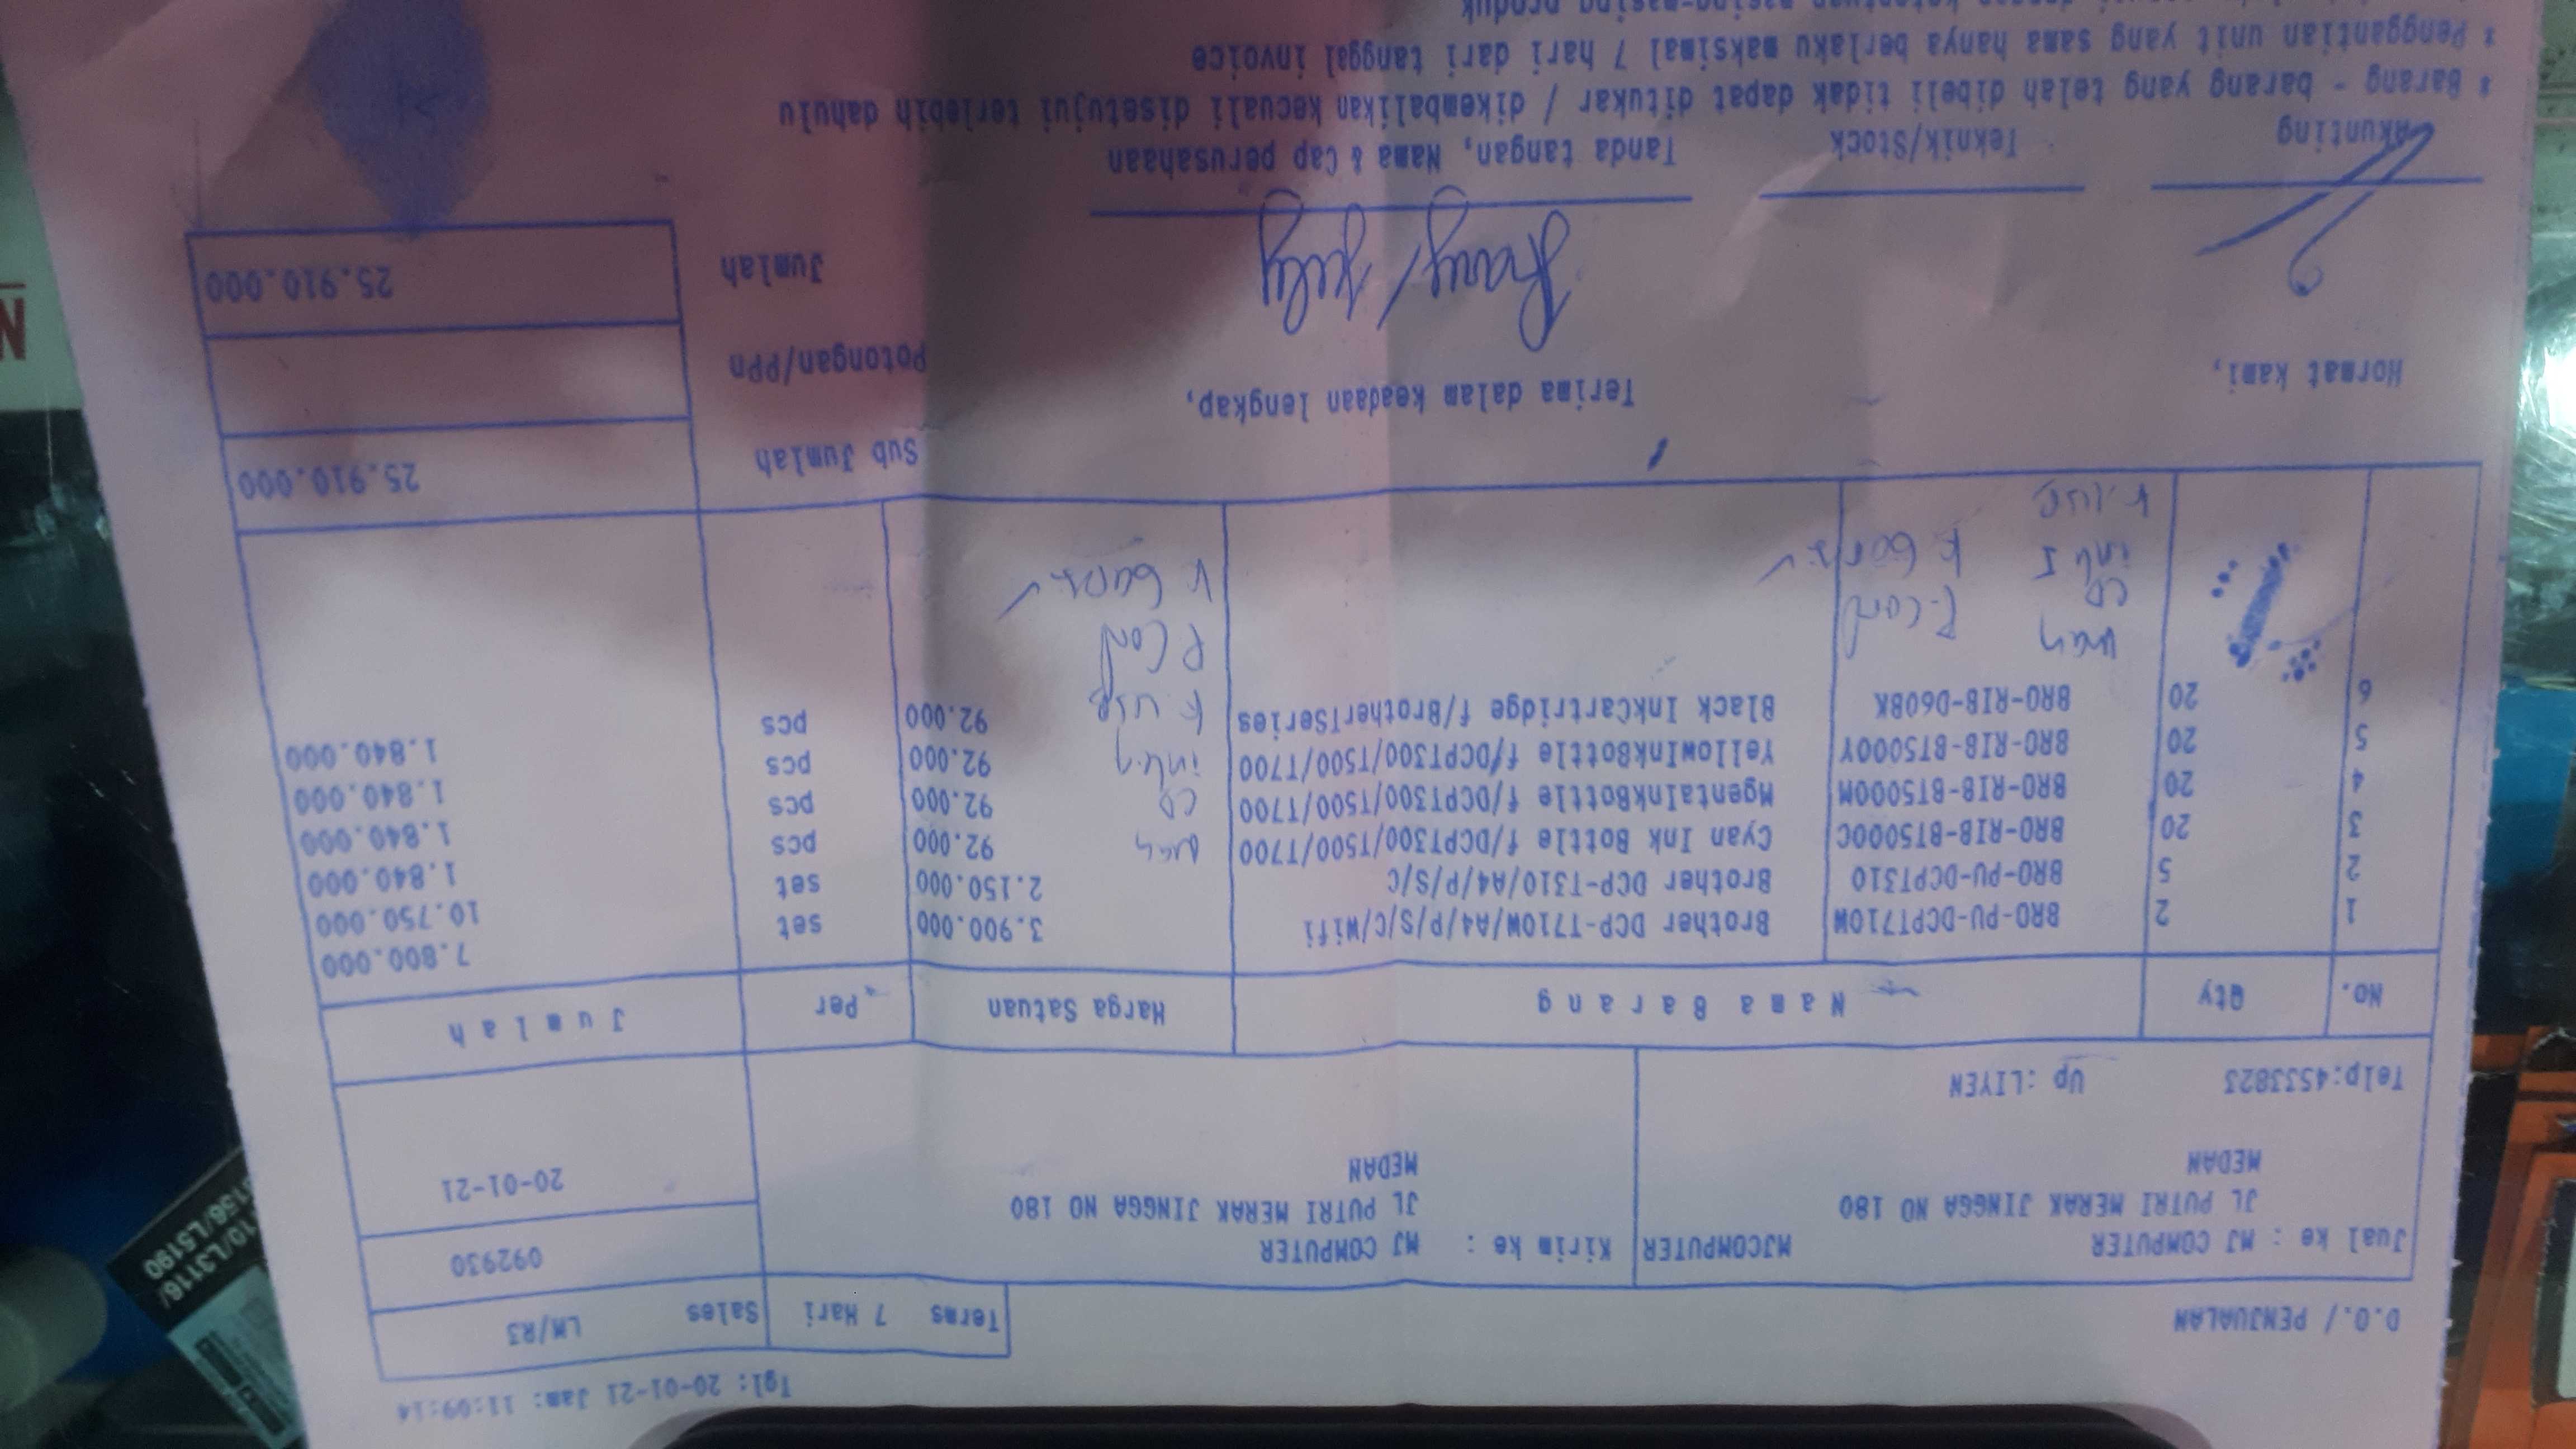 Tgl: 20-01-21 Jam: 11:09:14
D.O./ PENJUALAN
Terms 7 Hari Sales LM/R3
Jual ke : MJ COMPUTER MJCOMPUTER
JL PUTRI MERAK JINGGA NO 180
MEDAN
Telp:4533823 Up :LIYEN
Kirim ke : MJ COMPUTER
JL PUTRI MERAK JINGGA NO 180
MEDAN
092930
20-01-21
No. Qty Nama Barang Harga Satuan Per Jumlah
1 2 BRO-PU-DCPT710W Brother DCP-T710W/A4/P/S/C/Wifi 3.900.000 set 7.800.000
2 5 BRO-PU-DCPT310 Brother DCP-T310/A4/P/S/C 2.150.000 set 10.750.000
3 20 BRO-RIB-BT5000C Cyan Ink Bottle f/DCPT300/T500/T700 92.000 pcs 1.840.000
4 20 BRO-RIB-BT5000M MgentaInkBottle f/DCPT300/T500/T700 92.000 pcs 1.840.000
5 20 BRO-RIB-BT5000Y YellowInkBottle f/DCPT300/T500/T700 92.000 pcs 1.840.000
6 20 BRO-RIB-D60BK Black InkCartridge f/BrotherTSeries 92.000 pcs 1.840.000
CD
K USB
P Conf
CD
Sub Jumlah 25.910.000
Potongan/PPn
Jumlah 25.910.000
Hormat kami,
Terima dalam keadaan lengkap,
Akunting
Teknik/Stock
Tanda tangan, Nama & Cap perusahaan
* Barang - barang yang telah dibeli tidak dapat ditukar / dikembalikan kecuali disetujui terlebih dahulu
* Penggantian unit yang sama hanya berlaku maksimal 7 hari dari tanggal invoice
dengan ketentuan masing-masing produk
10/L3116/
3156/L5190
N